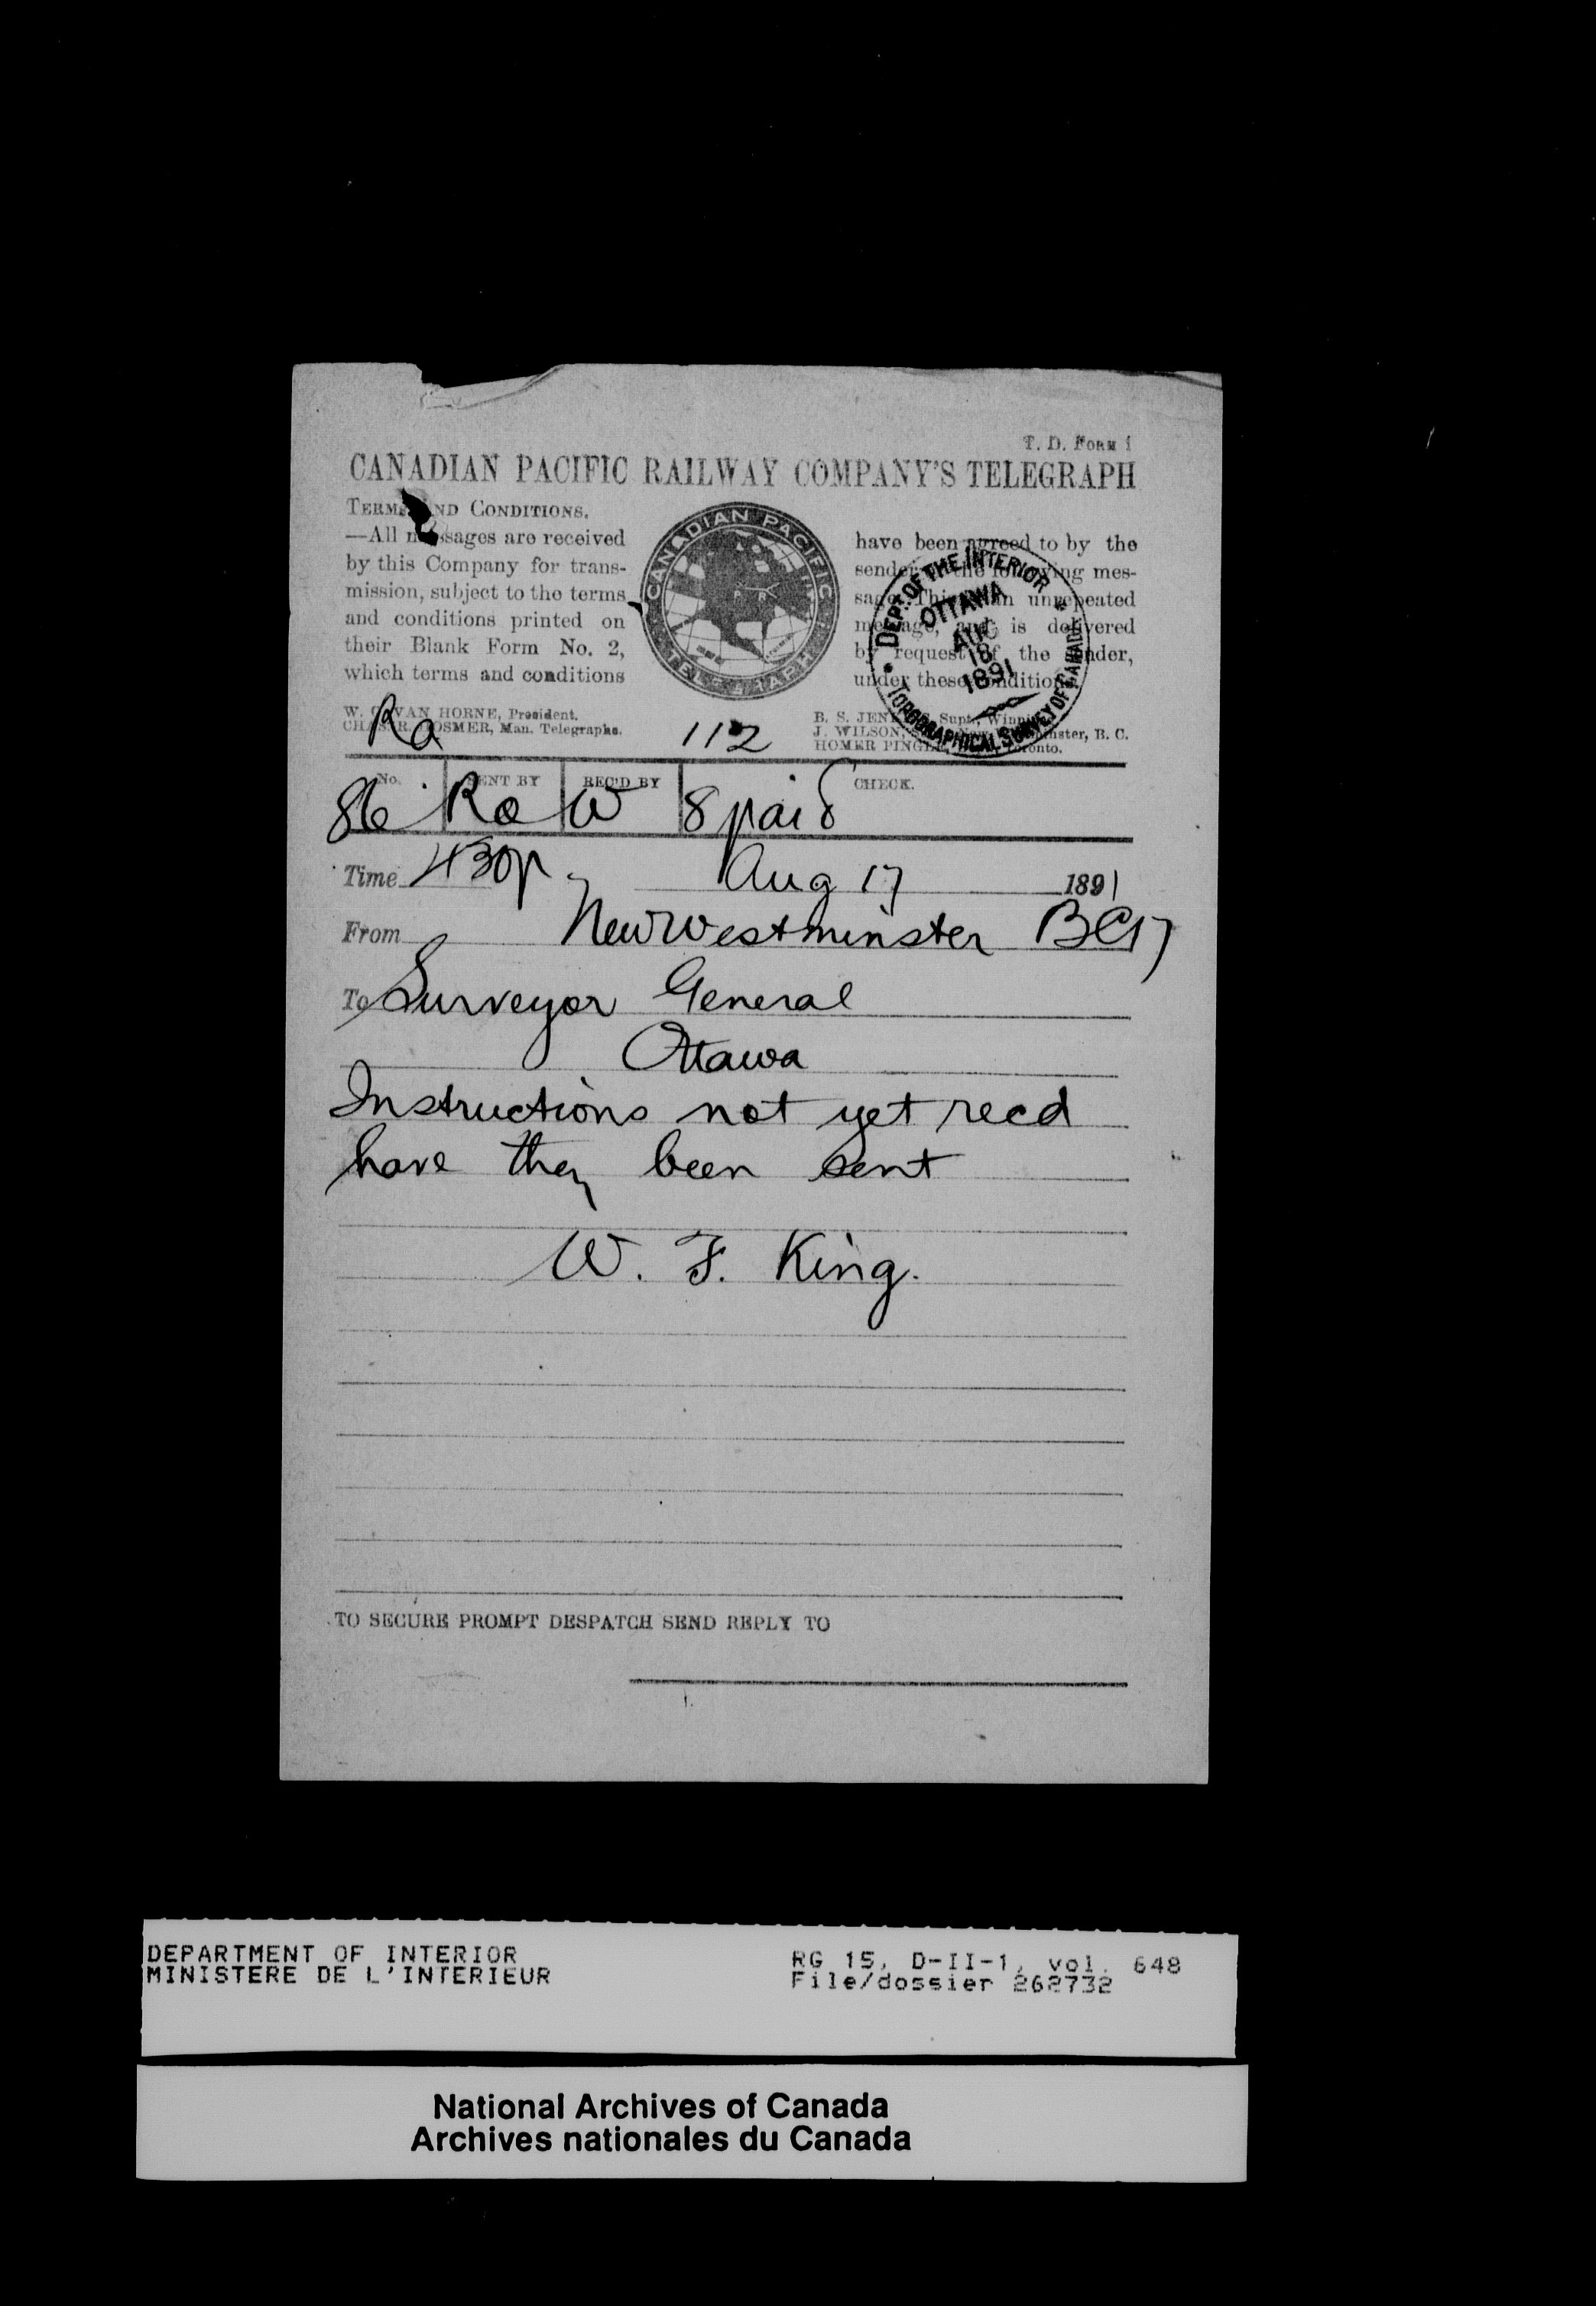 T. D. FORM 1
CANADIAN PACIFIC RAILWAY COMPANY'S TELEGRAPH
TERMS AND CONDITIONS.
—All messages are received
by this Company for trans-
mission, subject to the terms
and conditions printed on
their Blank Form No. 2,
which terms and conditions
CANADIAN PACIFIC
TELEGRAPH
have been agreed to by the
sender of the following mes-
sage. This is an unrepeated
message, and is delivered
by request of the sender,
under these conditions.
DEPT. OF THE INTERIOR
OTTAWA
AUG
18
1891
TOPOGRAPHICAL SURVEY OF CANADA
W. C. VAN HORNE, President.
CHAS. R. HOSMER, Man. Telegraphs.
B. S. JENKINS, Supt., Winnipeg
J. WILSON, Supt., New Westminster, B. C.
HOMER PINGLE, Toronto.
Ra 112
No. SENT BY REC'D BY CHECK.
86 Ra W 8 paid
Time 430p Aug 17 1891
From New Westminster BC 17
To Surveyor General
Ottawa
Instructions not yet recd
have they been sent
W. F. King.
TO SECURE PROMPT DESPATCH SEND REPLY TO
DEPARTMENT OF INTERIOR
MINISTERE DE L'INTERIEUR
RG 15, D-II-1, vol. 648
File/dossier 262732
National Archives of Canada
Archives nationales du Canada